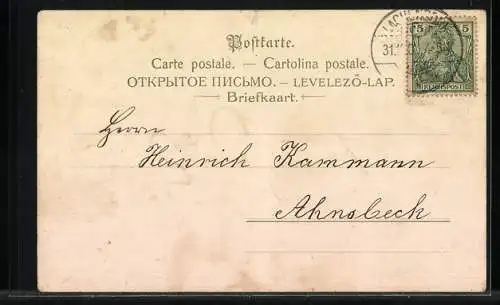 Postkarte.
Carte postale. – Cartolina postale.
ОТКРЫТОЕ ПИСЬМО. – LEVELEZŐ-LAP.
Briefkaart.
5 5
REICHSPOST
Herrn
Heinrich Kammann
Ahnsbeck